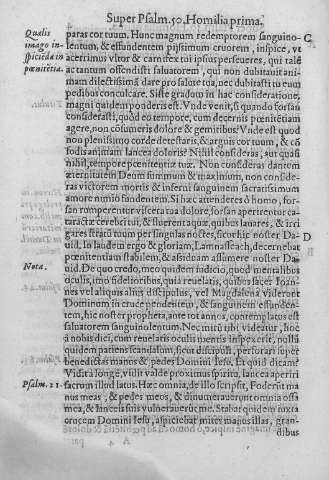 Super Psalm. 50. Homilia prima.
Qualis
imago in-
spicieda in
pœnitētia.
paras cor tuum. Hunc magnum redemptorem sanguino-
lentum, & effundentem pijssimum cruorem, inspice, vt
acerrimus vltor & carnifex tui ipsus perseueres, qui talē ac
tantum offendisti saluatorem, qui non dubitauit ani-
mam dilectissimā dare pro salute tua, nec dubitasti tu eum
pedibus conculcare. Siste gradum in hac consideratione,
magni quidem ponderis est. Vnde venit, si quando forsan
considerasti, quòd eo tempore, cum decernis pœnitentiam
agere, non cōsumeris dolore & gemitibus? Vnde est quod
non plenissimo corde detestaris, & arguis cor tuum, & cō
fodis animam lancea doloris? Nihil consideras, aut quasi
nihil, tempore pœnitentiæ tuæ. Non consideras dantem
æternitatem Deum summum & maximum, non conside-
ras victorem mortis & inferni sanguinem sacratissimum
amore nimio fundentem. Si hæc attenderes ô homo, for-
san rumperentur viscera toa dolore, forsan aperirentur ca-
taractæ cerebri tui, & fluerent aquæ, quibus lauares, & irri
gares stratū tuum per singulas noctes, sicorhic noster Da-
uid. In laudem ergo & gloriam, Lamnasseach, decernebat
pœnitentiam stabilem, & assiduam assumere noster Da-
uid. De quo credo, meo quidem iudicio, quod mentalibus
oculis, imò fidelioribus, quia reuelatis, quibus sacer Ioan-
nes vel aliquis alius discipulus, vel Magdalena viderunt
Dominum in cruce pendentem, & sanguinem effunden-
tem, hic noster propheta, ante tot annos, contemplatus est
saluatorem sanguinolentum. Nec mirū tibi videatur, hoc
à nobis dici, cum reuelatis oculi mentis inspexerit, nulla
quidem patiens scandalum, sicut discipuli, perforari super
benedictas manus & pedes Domini Iesu. Et quid dicam?
Vidit à longe, vidit valde proximus spiritu, lancea aperiri
sacrum illud latus. Hæc omnia, de illo scripsit, Foderūt ma
nus meas, & pedes meos, & dinumerauerunt omnia ossa
mea, & lanceis suis vulnerauerūt me. Stabat quidem iuxta
crucem Domini Iesu, aspiciebat mites manus illas, gran-
dibus
C
D
Nota.
Psalm. 21.
A 4